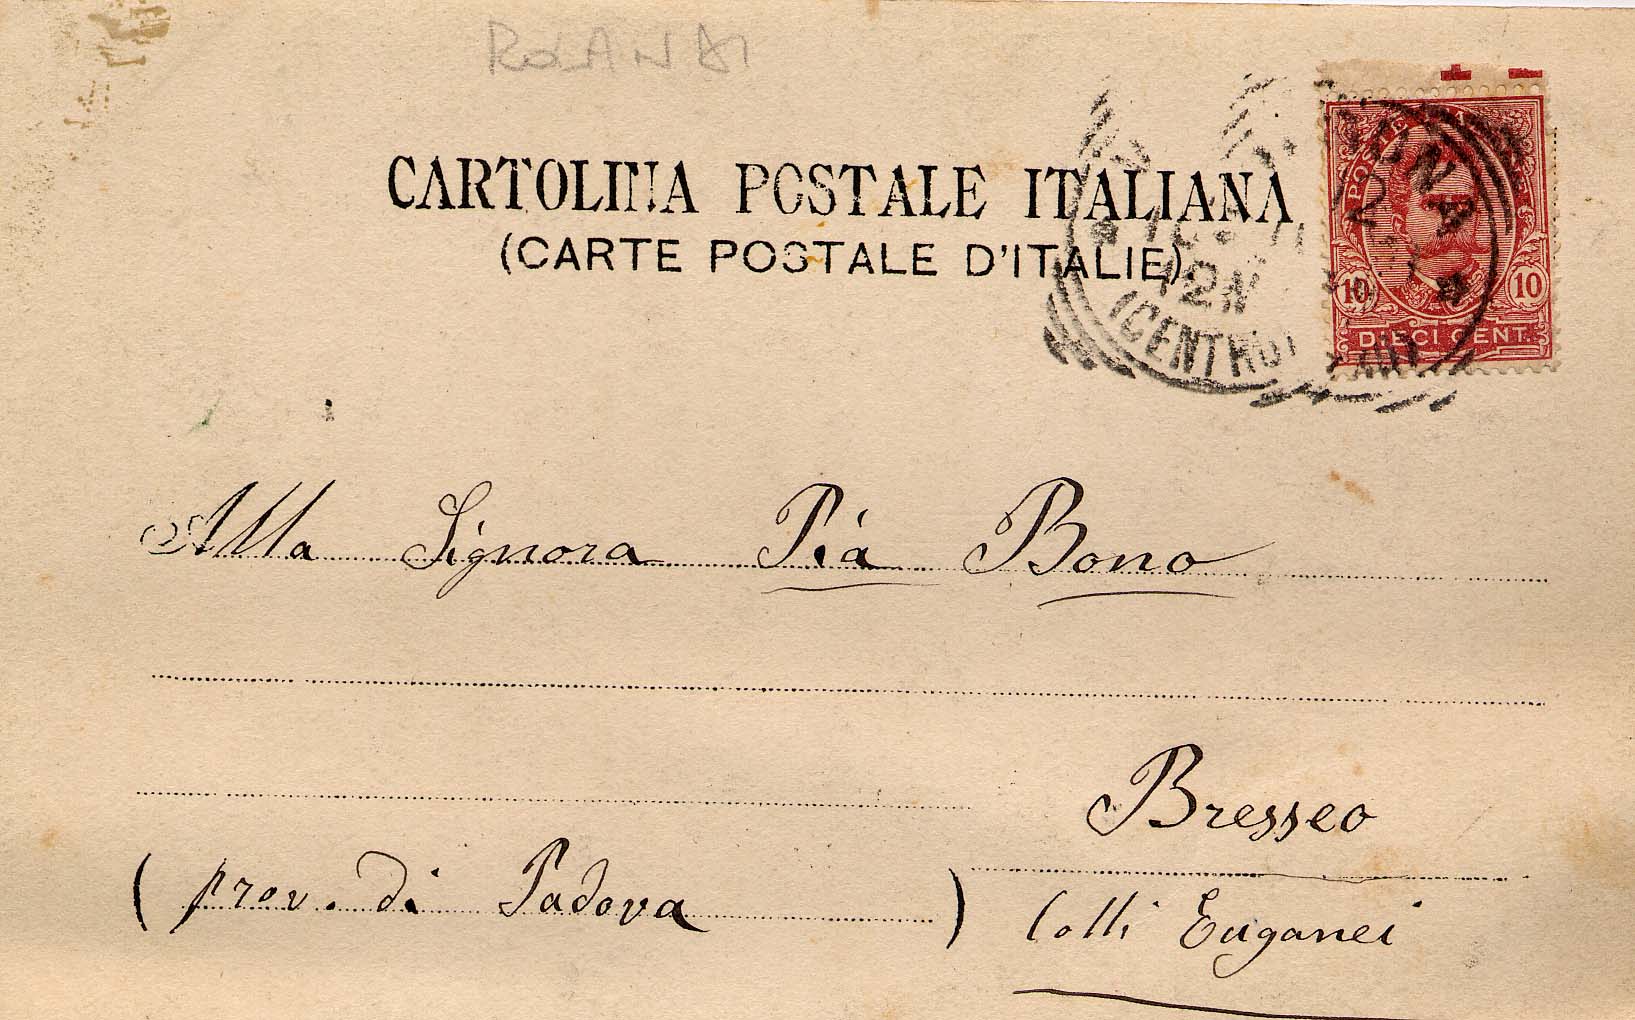 ROLANDI
CARTOLINA POSTALE ITALIANA
(CARTE POSTALE D'ITALIE)
POSTE
10 10
DIECI CENT.
12N
(CENTRO
Alla Signora Pia Bono
Bresseo
(prov. di Padova)
Colli Euganei